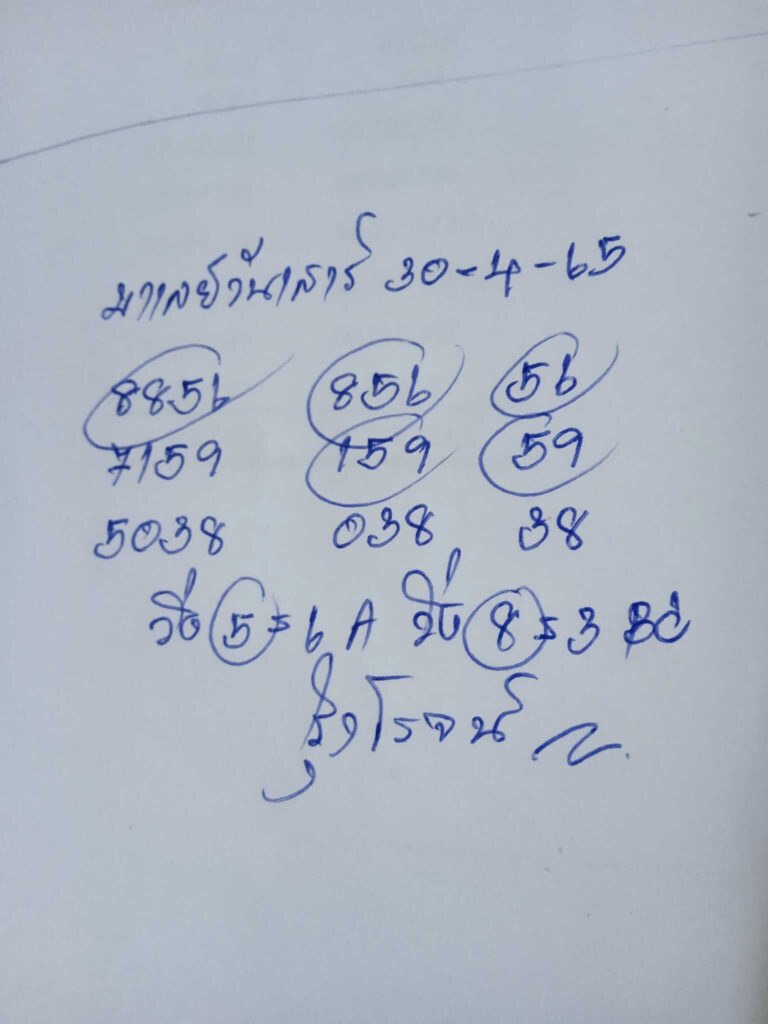 มาเลย์วันเสาร์ 30-4-65
8856 856 56
7159 159 59
5038 038 38
วิ่ง 5=6 A วิ่ง 8=3 BC
รุ่งโรจน์